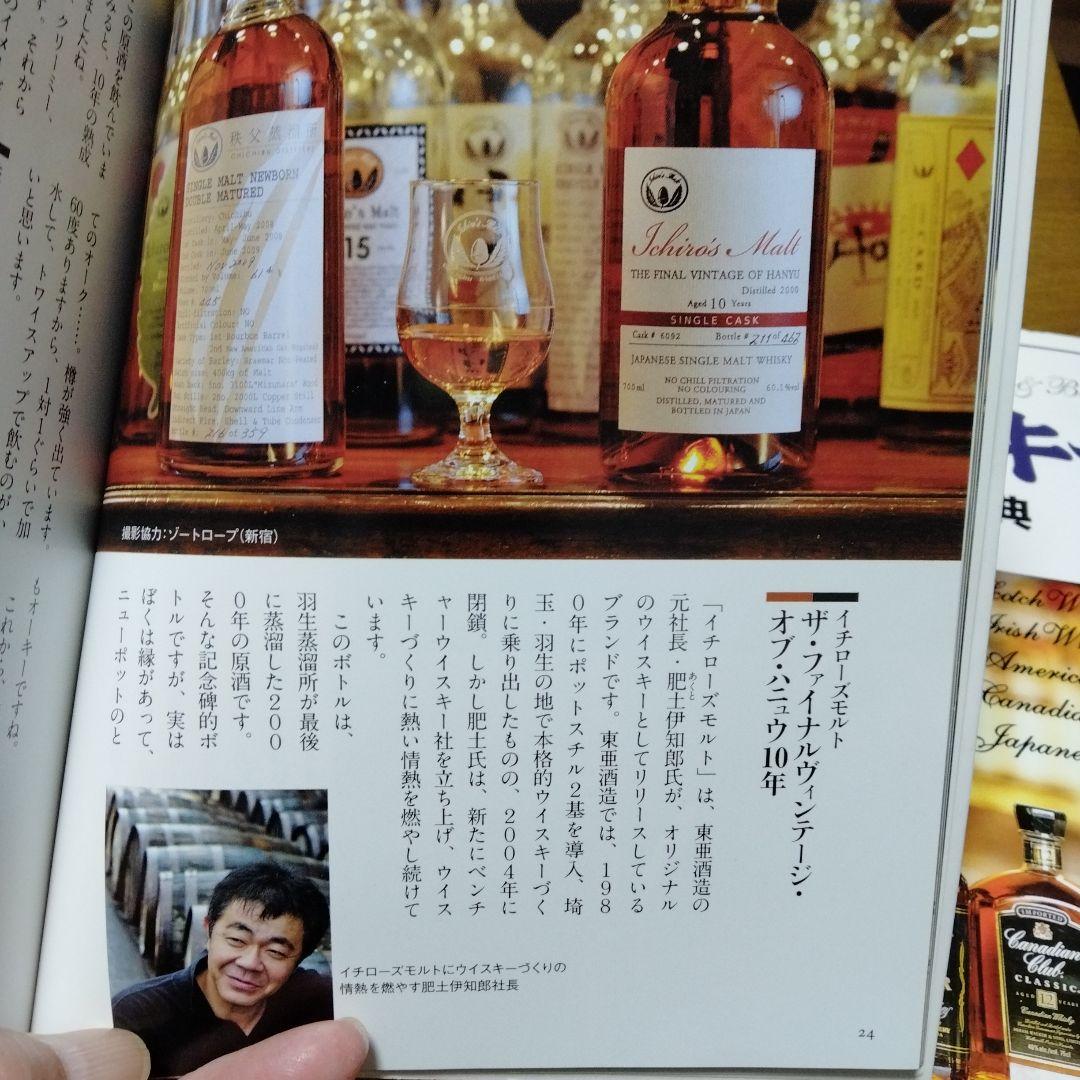 秩父蒸溜所
CHICHIBU DISTILLERY
SINGLE MALT NEWBORN
DOUBLE MATURED
Distillery: Chichibu
Distilled: April-May 2008
June 2008
June 2009
Nov 2009
Volume: 61.4
Volume: 700ml
Cask #: 445
Chill-filtration: NO
Artificial Colour: NO
Cask Type: 1st Bourbon Barrel
2nd New American Oak Hogshead
Variety of Barley: Braemar Non-Peated
Batch size: 400kg of Malt
Wash back: 5no. 3100L "Mizunara" Wood
Pot Stills: 2no. 2000L Copper Still
Straight Head, Downward Line Arm
Indirect Fire, Shell & Tube Condenser
Bottle #: 216 of 359
Malt
15
Ichiro's Malt
THE FINAL VINTAGE OF HANYU
Distilled 2000
Aged 10 Years
SINGLE CASK
Cask # 6092 Bottle # 211 of 462
JAPANESE SINGLE MALT WHISKY
NO CHILL FILTRATION
NO COLOURING
700ml 60.1%vol
DISTILLED, MATURED AND
BOTTLED IN JAPAN
撮影協力:ゾートロープ(新宿)
イチローズモルト
ザ・ファイナルヴィンテージ・
オブ・ハニュウ10年
「イチローズモルト」は、東亜酒造の
元社長・肥土伊知郎氏が、オリジナル
あくと
のウイスキーとしてリリースしている
ブランドです。東亜酒造では、198
0年にポットスチル2基を導入、埼
玉・羽生の地で本格的ウイスキーづく
りに乗り出したものの、2004年に
閉鎖。しかし肥土氏は、新たにベンチ
ャーウイスキー社を立ち上げ、ウイス
キーづくりに熱い情熱を燃やし続けて
います。
このボトルは、
羽生蒸溜所が最後
に蒸溜した200
0年の原酒です。
そんな記念碑的ボ
トルですが、実は
ぼくは縁があって、
ニューポットのと
イチローズモルトにウイスキーづくりの
情熱を燃やす肥土伊知郎社長
24
てのオーク……。樽が強く出ています。
60度ありますから、1対1ぐらいで加
水して、トワイスアップで飲むのがい
いと思います。
この原酒を飲んでいま
みると、10年の熟成
ましたね。
クリーミー、
す。それから
のイメージ
もオーキーですね。
これから、
キ
典
Scotch W
Irish Wh
America
Canadia
Japane
IMPORTED
Canadian
Club
CLASSIC
AGED 12 YEARS
Canadian Whisky